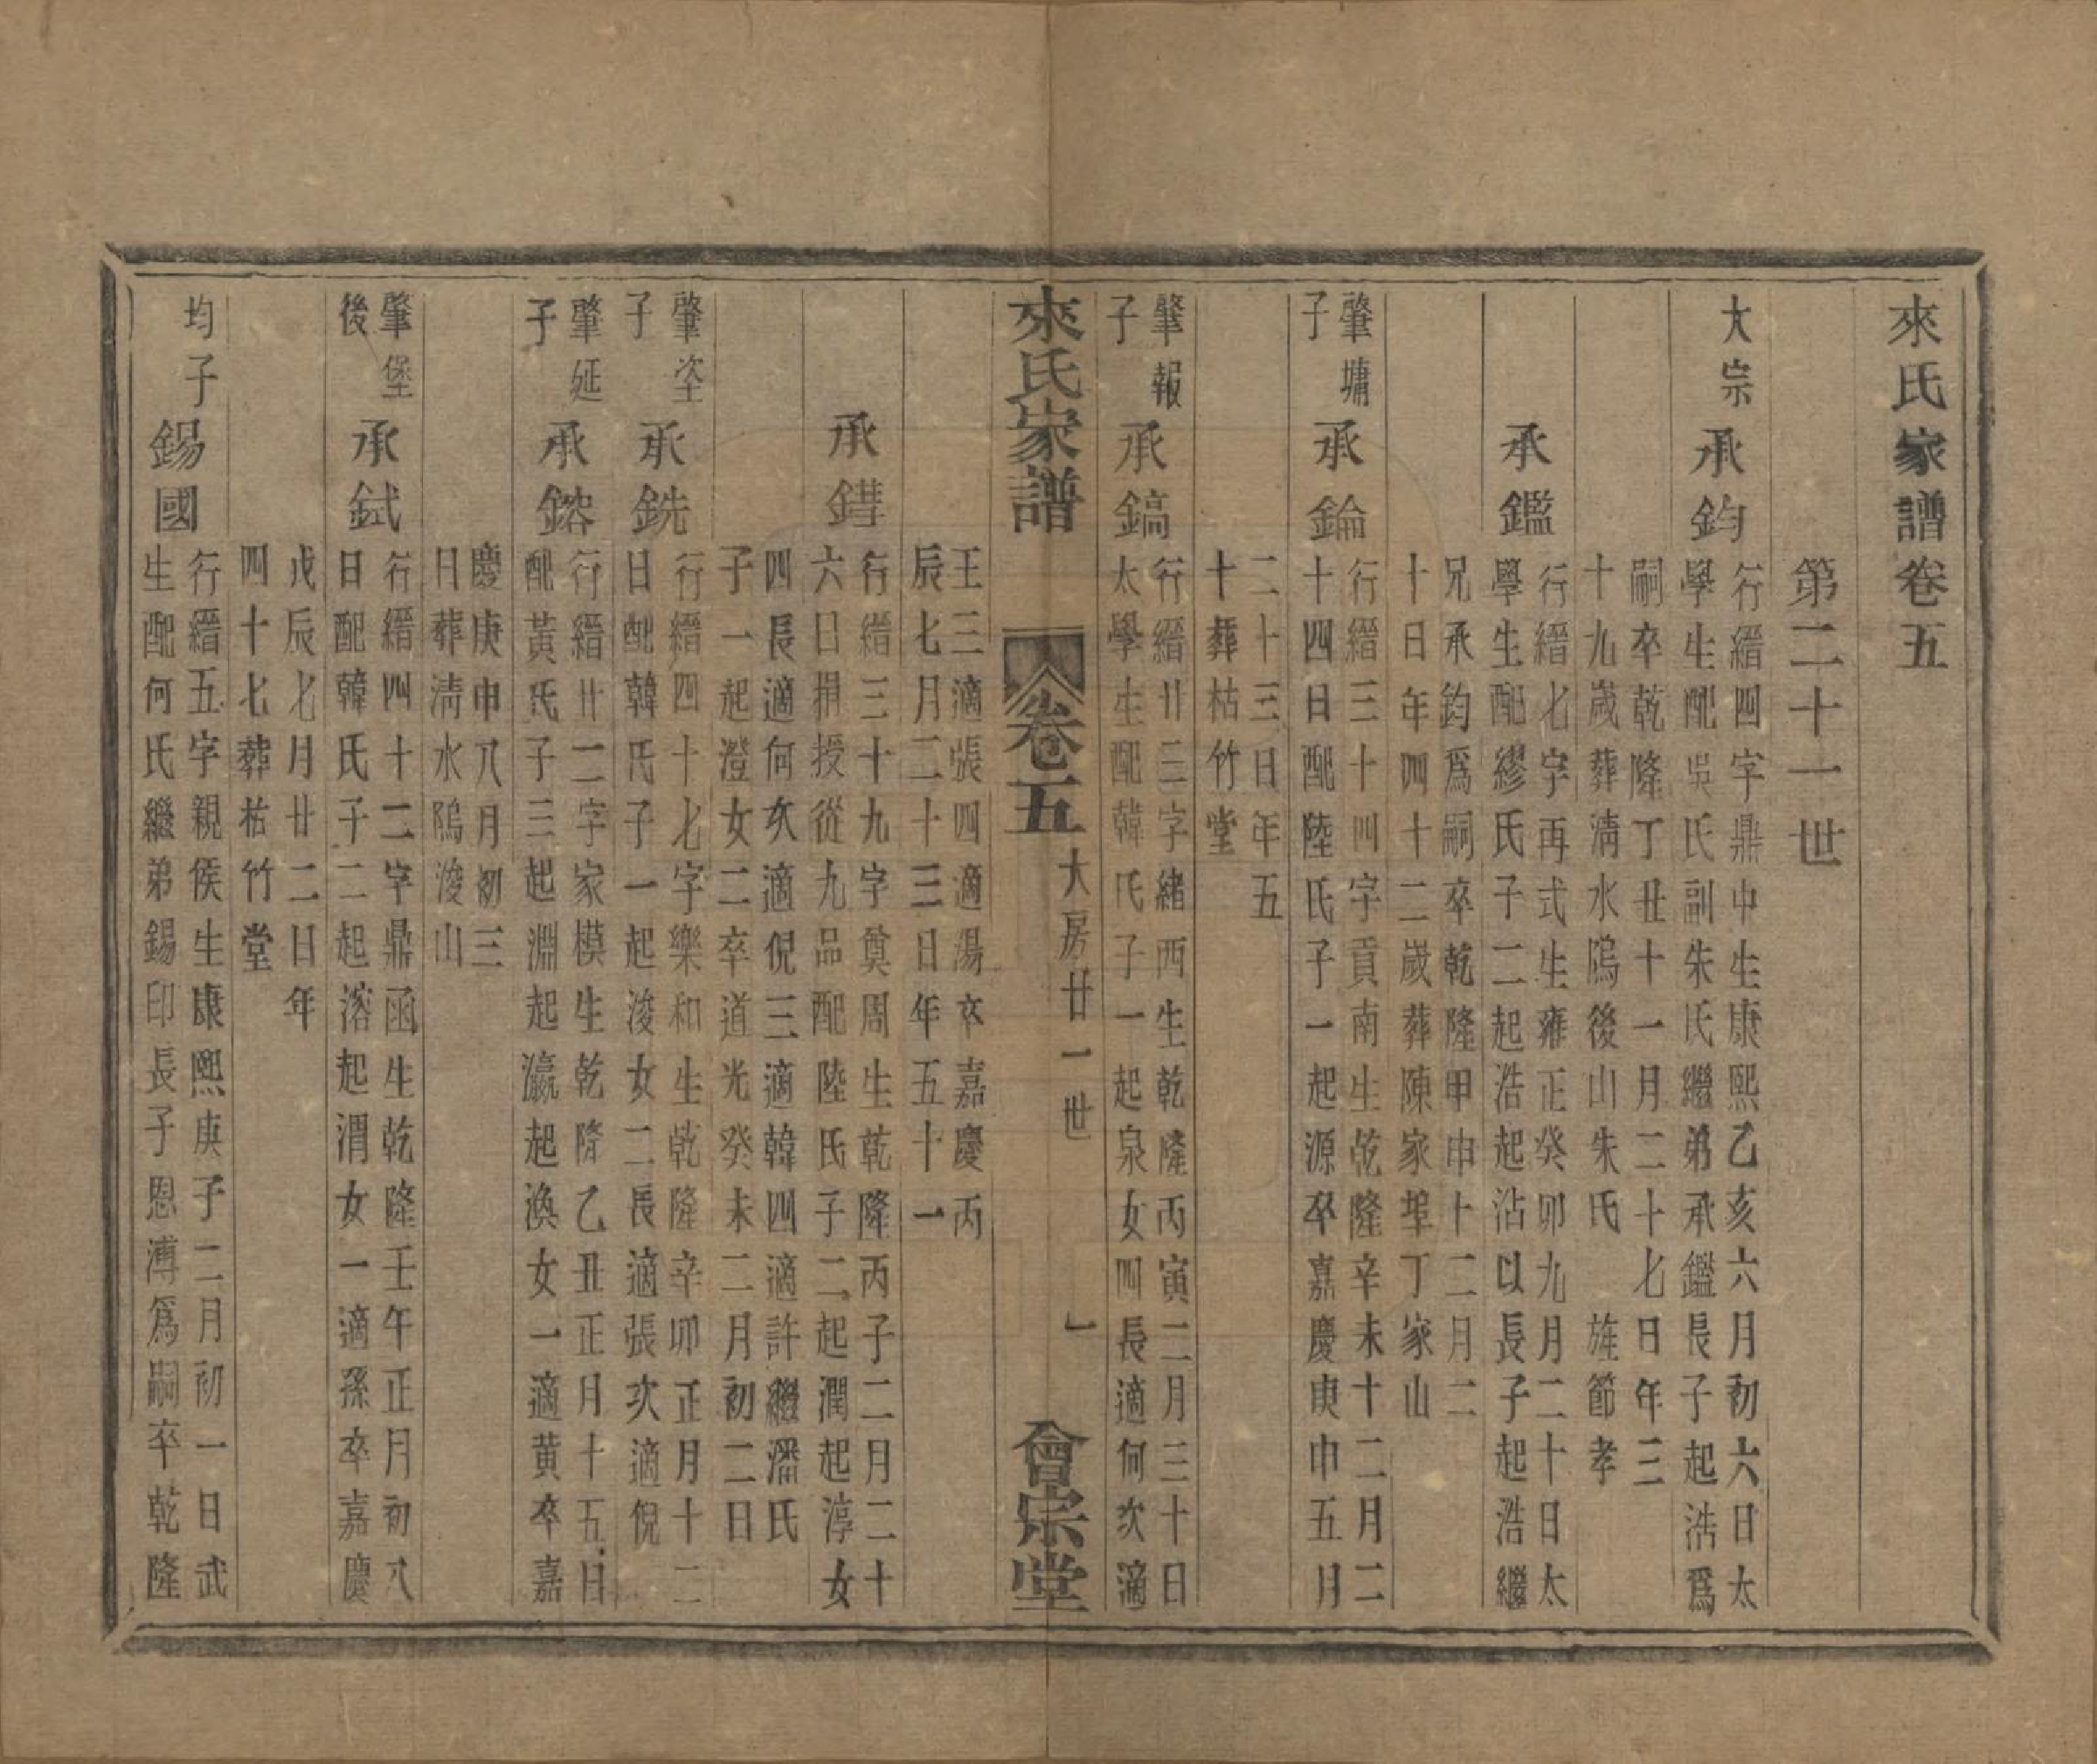 來氏家譜卷五
第二十一世
大宗
承鈞
行縉四字鼎中生康熙乙亥六月初六日太
學生配吳氏副朱氏繼弟承鑑長子起浩爲
嗣卒乾隆丁丑十一月二十七日年三
十九歲葬淸水隖後山朱氏 旌節孝
承鑑
行縉七字再式生雍正癸卯九月二十日太
學生配繆氏子二起浩起沾以長子起浩繼
兄承鈞爲嗣卒乾隆甲申十二月二
十日年四十二歲葬陳家埠丁家山
肇墉
子
承錀
行縉三十四字貢南生乾隆辛未十二月二
十四日配陸氏子一起源卒嘉慶庚申五月
二十三日年五
十葬枯竹堂
肇報
子
承鎬
行縉廿三字緒西生乾隆丙寅二月三十日
太學生配韓氏子一起泉女四長適何次適
來氏家譜
卷五
大房廿一世
一
會宗堂
王三適張四適湯卒嘉慶丙
辰七月二十三日年五十一
承鑄
行縉三十九字奠周生乾隆丙子二月二十
六日捐授從九品配陸氏子二起潤起淳女
四長適何次適倪三適韓四適許繼潘氏
子一起澄女二卒道光癸未二月初二日
肇垐
子
承銑
行縉四十七字樂和生乾隆辛卯正月十二
日配韓氏子一起浚女二長適張次適倪
肇延
子
承鎔
行縉廿二字家模生乾隆乙丑正月十五日
配黃氏子三起淵起瀛起渙女一適黄卒嘉
慶庚申八月初三
日葬淸水隖浚山
肇堡
後
承鉽
行縉四十二字鼎函生乾隆壬午正月初八
日配韓氏子二起溶起渭女一適孫卒嘉慶
戊辰七月廿二日年
四十七葬枯竹堂
均子
錫國
行縉五字親侯生康熙庚子二月初一日武
生配何氏繼弟錫印長子恩溥爲嗣卒乾隆